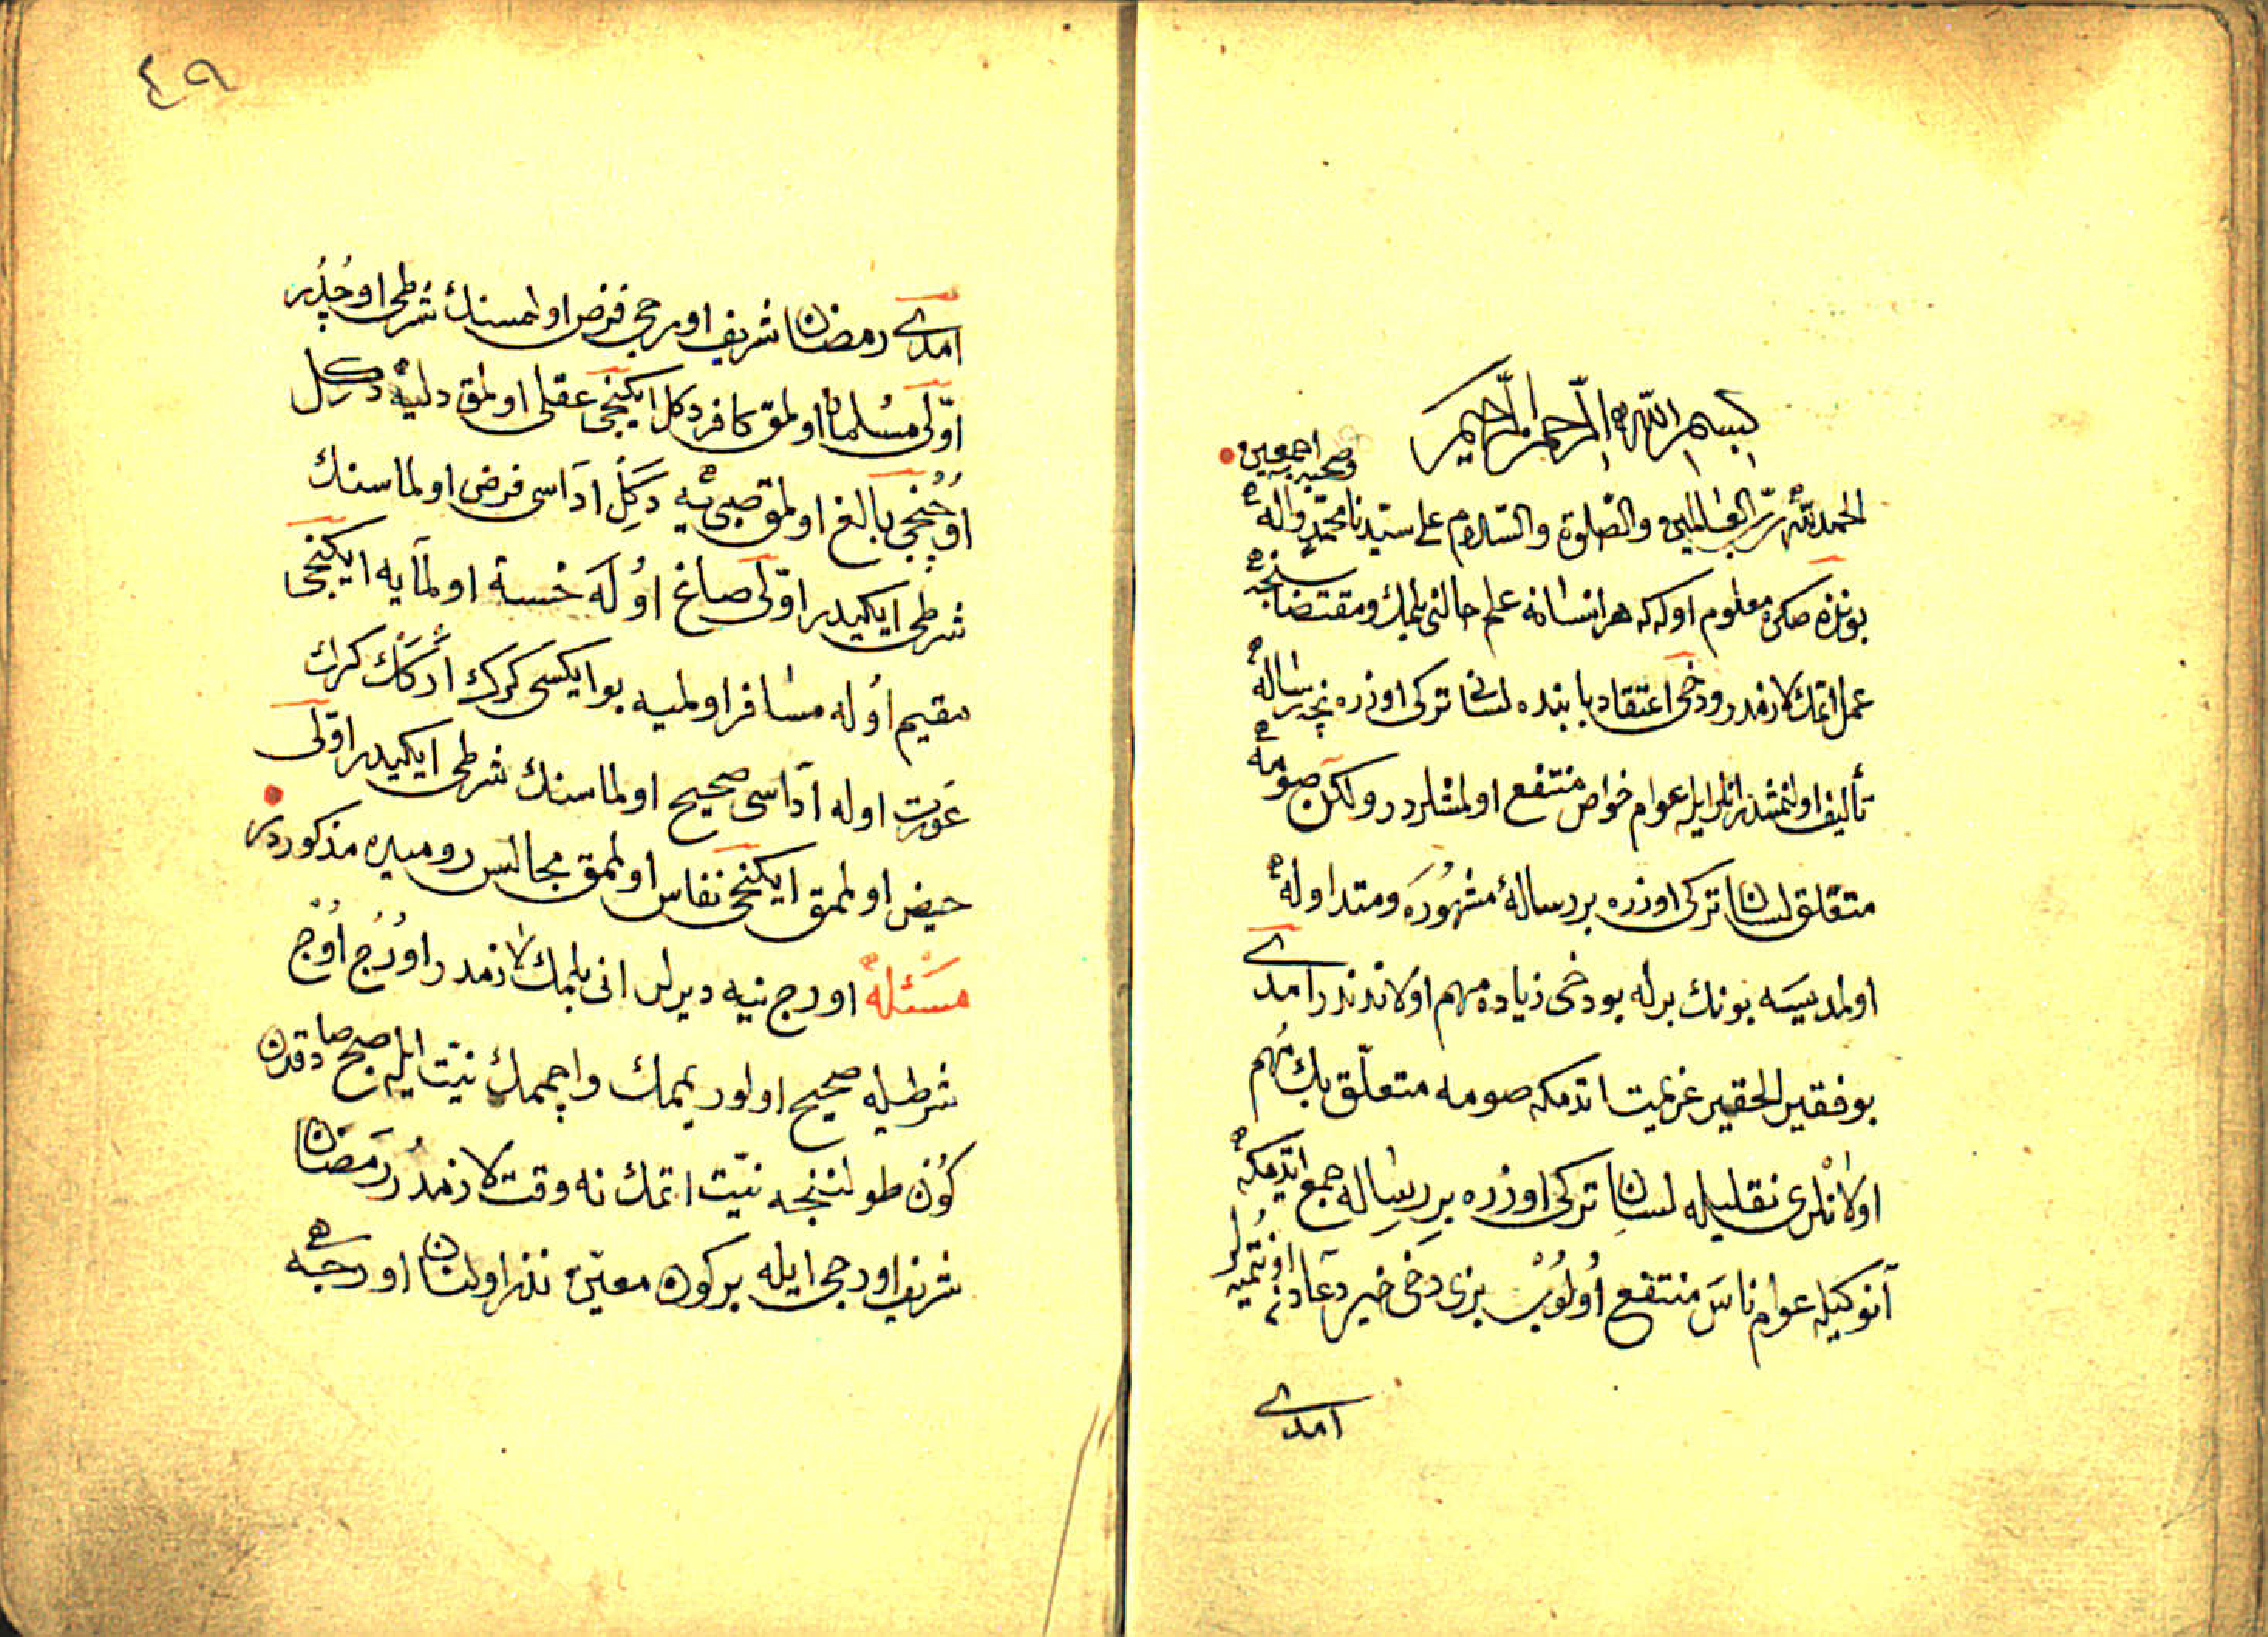 بسم الله الرحمن الرحيم
الحمد لله ربّ العالمين والصّلوة والسّلام على سيّدنا محمّد واله وصحبه اجمعين
بوندن صكره معلوم اوله كه هر انسانه علم حالنى بلمك ومقتضاسنجه
عمل اتمك لازمدر ودخى اعتقاد بابنده لسان تركى اوزره نچه رساله
تأليف اولنمشدر انلر ايله عوام خواص منتفع اولمشلردر ولكن صومه
متعّلق لسان تركى اوزره بر رسالهٔ مشهوره ومتداوله
اولمديسه بونك برله بو دخى زياده مهم اولاندندر امدى
بو فقير الحقير عزيمت اتدمكه صومه متعلّق پك مُهم
اولانلرى نقليله لسان تركى اوزره بر رساله جمع ايتدمكه
آنوكيله عوام ناس منتفع اُولُوب بزى دخى خير دعادن اونتميه لر
امدى
٤٩
امدى رمضان شريف اورجى فرض اولمسنك شرطى اوچدُر
اوّلى مسُلمان اولمق كافر دكل ايكنجى عقلى اولمق دليه دكل
اوُچنجى بالغ اولمق صبىئيه دكَل اداسى فرض اولماسنك
شرطى ايكيدر اوّلى صاغ اوُله خسته اولمايه ايكنجى
مقيم اوُله مسافر اولميه بو ايكسى كرك اركك كرك
عَورت اوله اداسى صحيح اولماسنك شرطى ايكيدر اوّلى
حيض اولممق ايكنجى نفاس اولممق مجالس روميده مذكوردر
مَسْئله اورج نيه ديرلر انى بلمك لازمدر اورُج اوُج
شرطيله صحيح اولور يممك وايچممك نيّت ايله صبح صادقدن
كوُن طولننجه نيّت اتمك نه وقت لازمدُر رمَضان
شريف اورجى ايله بر كون معيّن نذر اولنان اورجه